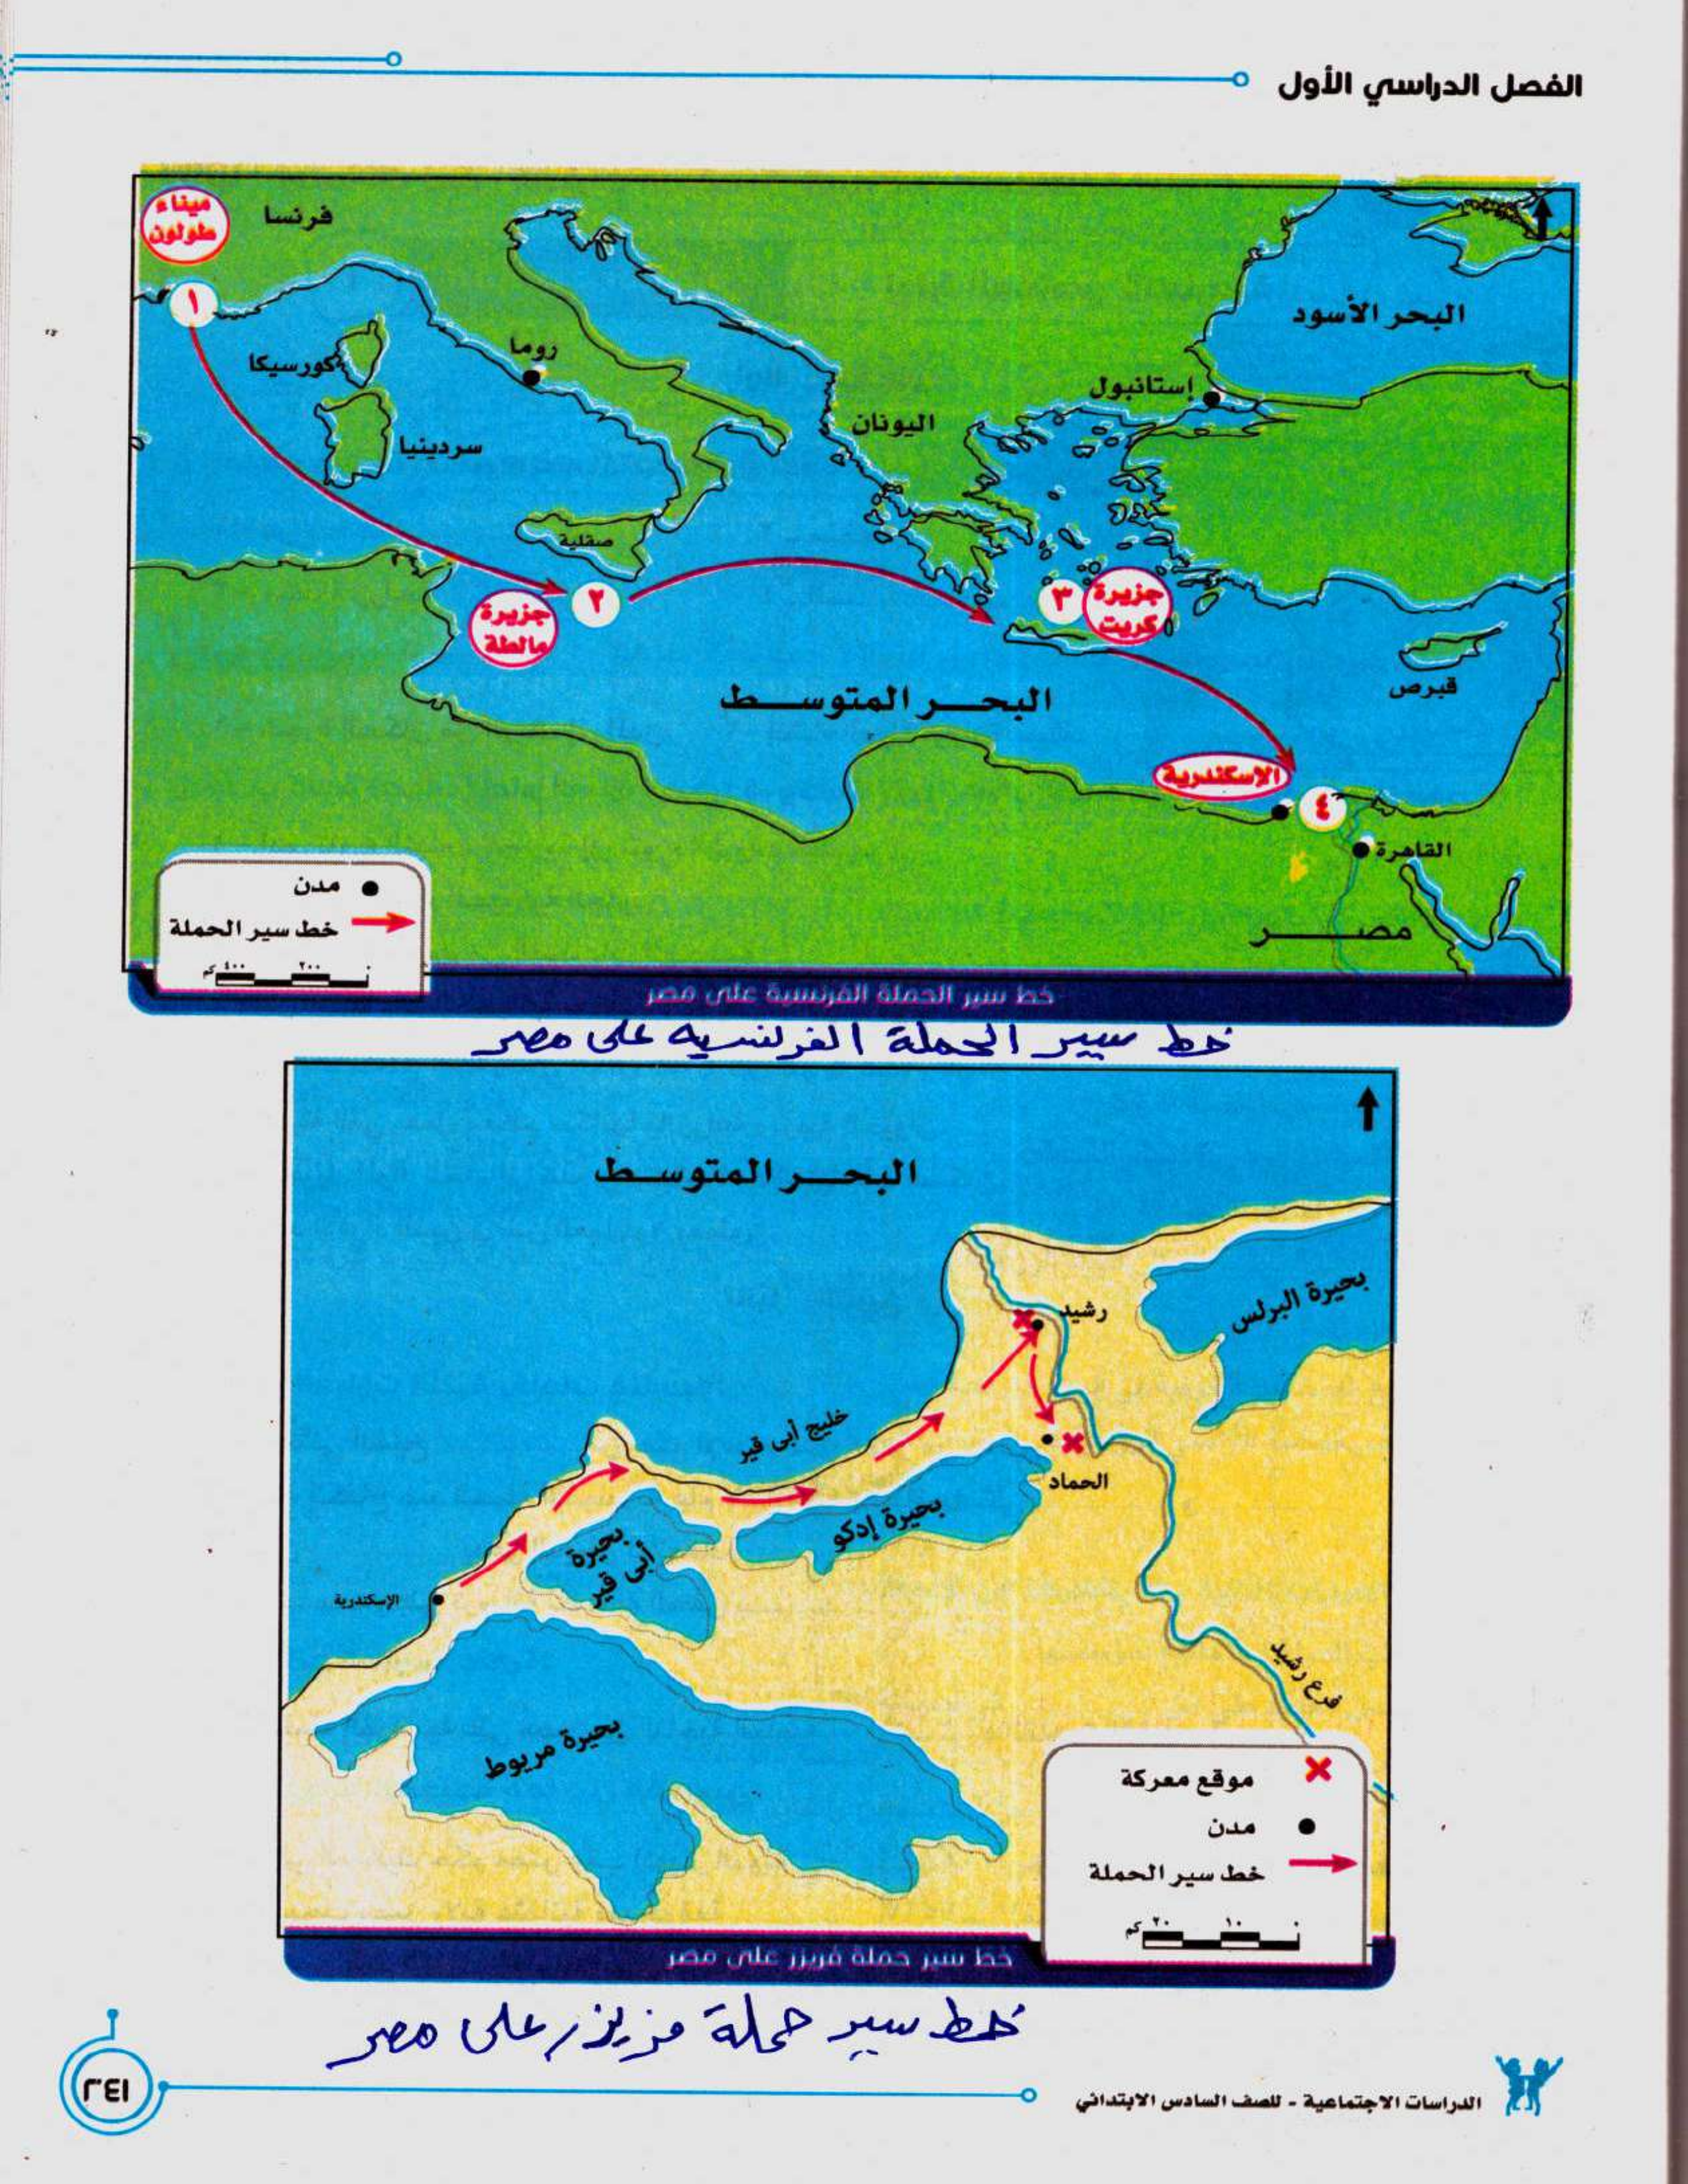 الفصل الدراسي الأول
ميناء
طولون
فرنسا
١
كورسيكا
روما
سردينيا
صقلية
اليونان
إستانبول
البحر الأسود
جزيرة
مالطة
٢
٣
جزيرة
كريت
قبرص
البحر المتوسط
الإسكندرية
٤
القاهرة
مصر
مدن
خط سير الحملة
٠ ٢٠٠ ٤٠٠ كم
خط سير الحملة الفرنسية على مصر
خط سير الحملة الفرنسيه على مصر
البحر المتوسط
بحيرة البرلس
رشيد
خليج أبى قير
الحماد
بحيرة إدكو
بحيرة
أبى قير
الإسكندرية
فرع رشيد
بحيرة مريوط
موقع معركة
مدن
خط سير الحملة
٠ ١٠ ٢٠ كم
خط سير حملة فريزر على مصر
خط سير حملة فريزر على مصر
الدراسات الاجتماعية - للصف السادس الابتدائي
٢٤١